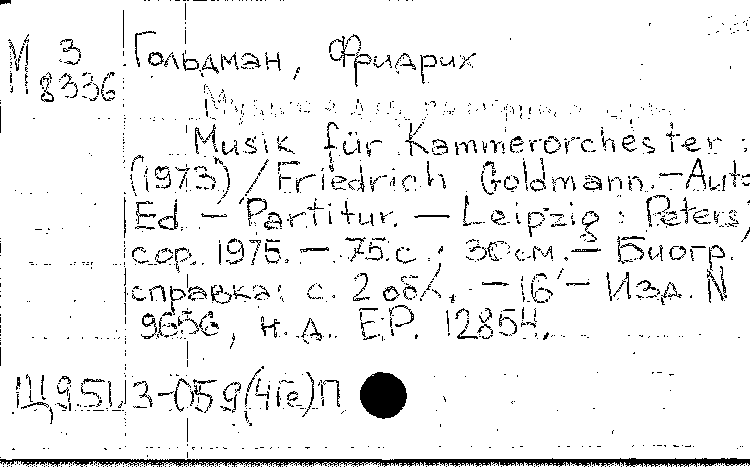 М 3 Гольдман, Фридрих
8336
Musik für Kammerorchester :
(1973) / Friedrich Goldmann. - Auto
Ed. - Partitur. - Leipzig : Peters,
cop. 1975. - 75 с. ; 30 см. - Биогр.
справка: с. 2 обл. - 16' - Изд. N
9656, н. д. E.P. 12854.
Щ951.3-059(4Ге)П